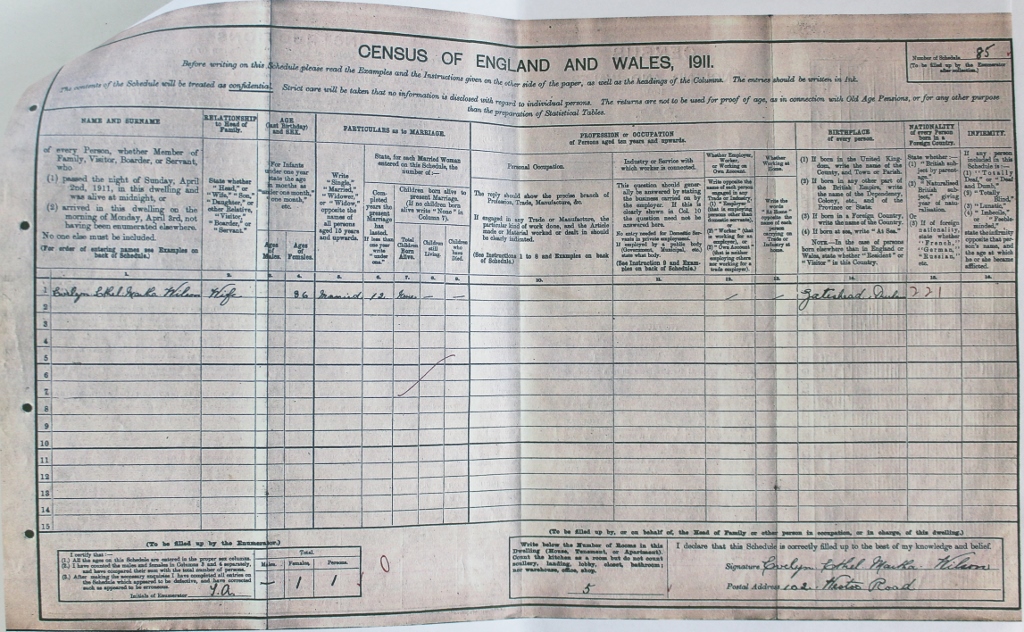 CENSUS OF ENGLAND AND WALES, 1911.
Number of Schedule 85
(To be filled up by the Enumerator after collection.)
Before writing on this Schedule please read the Examples and the Instructions given on the other side of the paper, as well as the headings of the Columns. The entries should be written in Ink.
The contents of the Schedule will be treated as confidential. Strict care will be taken that no information is disclosed with regard to individual persons. The returns are not to be used for proof of age, as in connection with Old Age Pensions, or for any other purpose
than the preparation of Statistical Tables.
NAME AND SURNAME
of every Person, whether Member of
Family, Visitor, Boarder, or Servant,
who
(1) passed the night of Sunday, April
2nd, 1911, in this dwelling and
was alive at midnight, or
(2) arrived in this dwelling on the
morning of Monday, April 3rd, not
having been enumerated elsewhere.
No one else must be included.
(For order of entering names see Examples on
back of Schedule.)
RELATIONSHIP
to Head of
Family.
State whether
"Head," or
"Wife," "Son,"
"Daughter," or
other Relative,
"Visitor,"
"Boarder," or
"Servant."
AGE
(last Birthday)
and SEX.
For Infants
under one year
state the age
in months as
"under one month,"
"one month,"
etc.
Ages of Males.
Ages of Females.
PARTICULARS as to MARRIAGE.
Write
"Single,"
"Married,"
"Widower,"
or "Widow,"
opposite the
names of
all persons
aged 15 years
and upwards.
State, for each Married Woman
entered on this Schedule, the
number of:—
Completed years the present Marriage has lasted.
If less than one year write "under one."
Children born alive to
present Marriage.
(If no children born
alive write "None" in
Column 7).
Total Children Born Alive.
Children still Living.
Children who have Died.
PROFESSION or OCCUPATION
of Persons aged ten years and upwards.
Personal Occupation.
The reply should show the precise branch of
Profession, Trade, Manufacture, &c.
If engaged in any Trade or Manufacture, the
particular kind of work done, and the Article
made or Material worked or dealt in should
be clearly indicated.
(See Instructions 1 to 8 and Examples on back
of Schedule.)
Industry or Service with
which worker is connected.
This question should generally
be answered by stating
the business carried on by
the employer. If this is
clearly shown in Col. 10
the question need not be
answered here.
No entry needed for Domestic Servants
in private employment.
If employed by a public body
(Government, Municipal, etc.)
state what body.
(See Instruction 9 and Examples
on back of Schedule.)
Whether Employer,
Worker,
or Working on
Own Account.
Whether
Working at
Home.
BIRTHPLACE
of every person.
(1) If born in the United Kingdom,
write the name of the
County, and Town or Parish.
(2) If born in any other part of
the British Empire, write
the name of the Dependency,
Colony, etc., and of the
Province or State.
(3) If born in a Foreign Country,
write the name of the Country.
(4) If born at sea, write "At Sea."
NOTE.—In the case of persons
born elsewhere than in England or
Wales, state whether "Resident" or
"Visitor" in this Country.
NATIONALITY
of every Person
born in a
Foreign Country.
INFIRMITY.
1. 2. 3. 4. 5. 6. 7. 8. 9. 10. 11. 12. 13. 14. 15. 16.
1 Evelyn Ethel Wilson Wife 36 Married 12 None — — — — Gateshead 221
2
3
4
5
6
7
8
9
10
11
12
13
14
15
(To be filled up by the Enumerator.)
I certify that:—
(1.) All the ages on this Schedule are entered in the proper sex columns.
(2.) I have counted the males and females in Columns 3 and 4 separately,
and have compared their sum with the total number of persons.
(3.) After making the necessary enquiries I have completed all entries on
the Schedule which appeared to be defective, and have corrected
such as appeared to be erroneous.
Initials of Enumerator
Total.
Males. Females. Persons.
— 1 1
0
(To be filled up by, or on behalf of, the Head of Family or other person in occupation, or in charge, of this dwelling.)
Write below the Number of Rooms in this
Dwelling (House, Tenement, or Apartment).
Count the kitchen as a room but do not
count scullery, landing, lobby, closet, bathroom;
nor warehouse, office, shop.
5
I declare that this Schedule is correctly filled up to the best of my knowledge and belief.
Signature Evelyn Ethel Wilson
Postal Address 102 Road